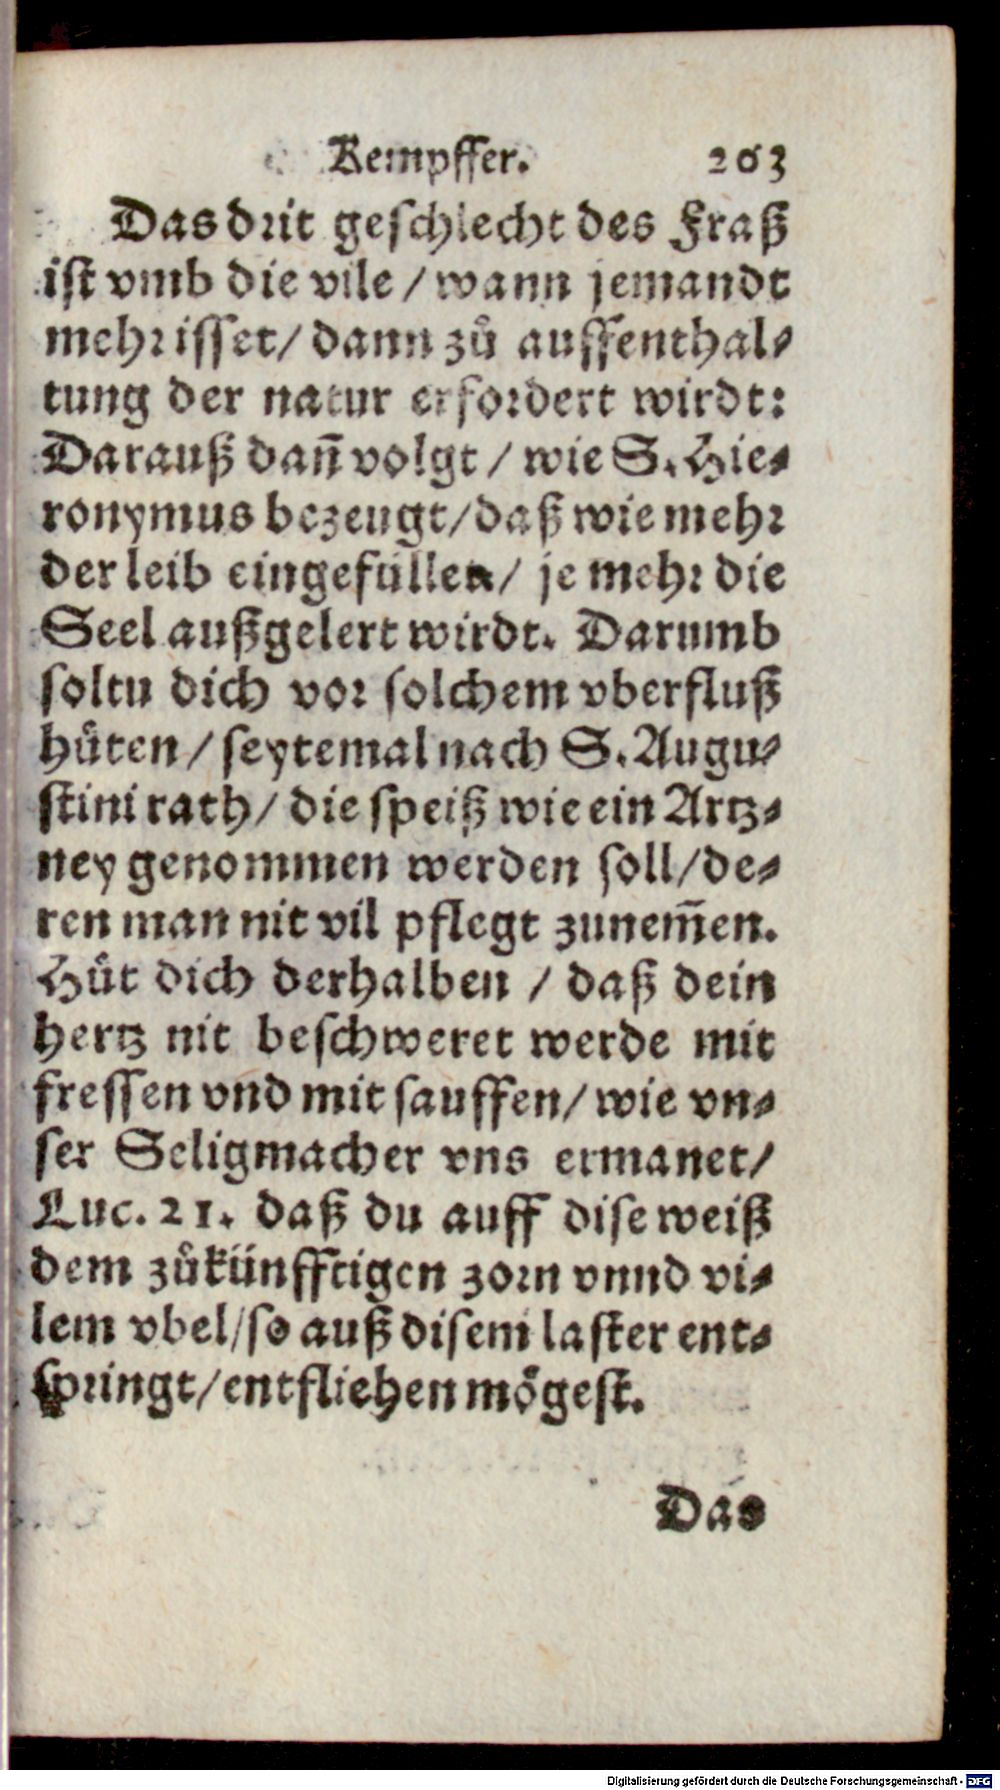 Kempffer. 203
Das drit geschlecht des Fraß
ist vmb die vile / wann jemandt
mehr isset / dann zů auffenthal⸗
tung der natur erfordert wirdt:
Darauß dañ volgt / wie S. Hie⸗
ronymus bezeugt / daß wie mehr
der leib eingefüllen / je mehr die
Seel außgelert wirdt. Darumb
soltu dich vor solchem vberfluß
hüten / seytemal nach S. Augu⸗
stini rath / die speiß wie ein Artz⸗
ney genommen werden soll / de⸗
ren man nit vil pflegt zunem̃en.
Hüt dich derhalben / daß dein
hertz nit beschweret werde mit
fressen vnd mit sauffen / wie vn⸗
ser Seligmacher vns ermanet /
Luc. 21. daß du auff dise weiß
dem zůkünfftigen zorn vnnd vi⸗
lem vbel / so auß disem laster ent⸗
springt / entfliehen mögest.
Das
Digitalisierung gefördert durch die Deutsche Forschungsgemeinschaft - DFG